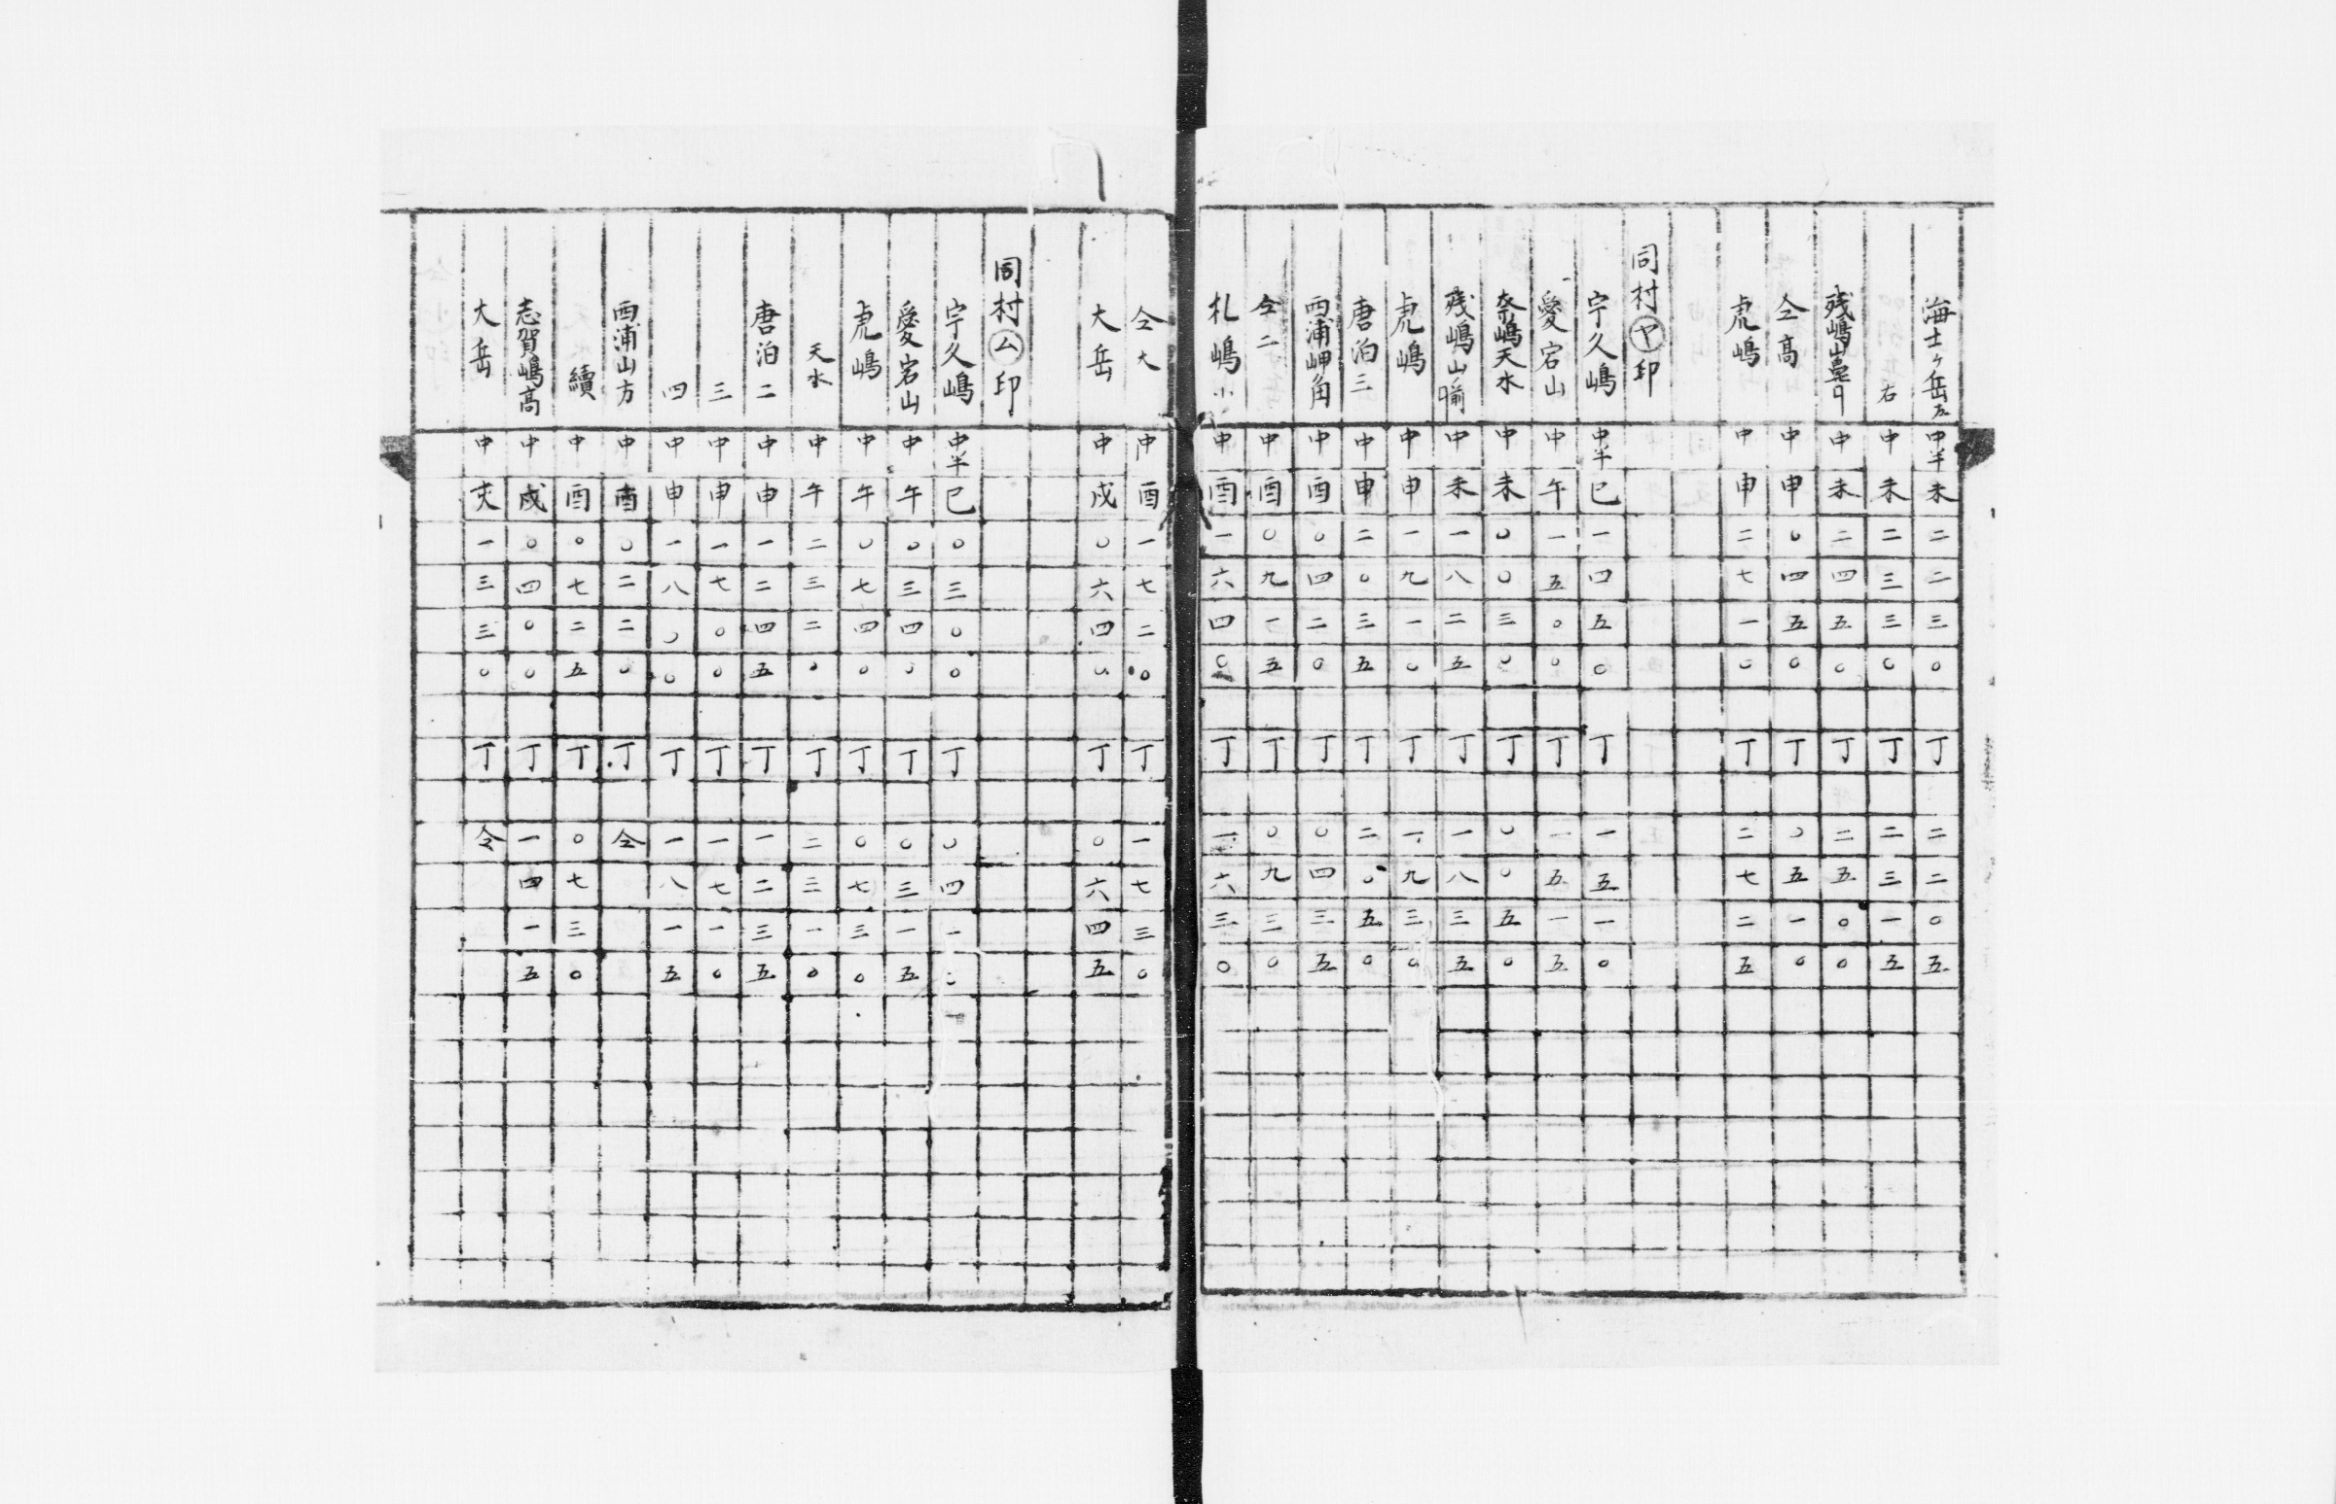 海士ヶ岳左 中半 未 二 二 三 〇 丁 二 二 〇 五
右 中 未 二 三 三 〇 丁 二 三 一 五
残嶋山 中 未 二 四 五 〇 丁 二 五 〇 〇
仝高 中 申 〇 四 五 〇 丁 〇 五 一 〇
虎嶋 中 申 二 七 一 〇 丁 二 七 二 五
同村㋳印
宇久嶋 中半 巳 一 四 五 〇 丁 一 五 一 〇
愛宕山 中 午 一 五 〇 〇 丁 一 五 一 五
奈嶋天水 中 未 〇 〇 三 〇 丁 〇 〇 五 〇
残嶋山 中 未 一 八 二 五 丁 一 八 三 五
虎嶋 中 申 一 九 一 〇 丁 一 九 三 〇
唐泊三 中 申 二 〇 三 五 丁 二 〇 五 〇
西浦岬角 中 酉 〇 四 二 〇 丁 〇 四 三 五
仝二 中 酉 〇 九 一 五 丁 〇 九 三 〇
札嶋小 中 酉 一 六 四 〇 丁 一 六 三 〇
仝大 中 酉 一 七 二 〇 丁 一 七 三 〇
大岳 中 戌 〇 六 四 〇 丁 〇 六 四 五
同村㋰印
宇久嶋 中半 巳 〇 三 〇 〇 丁 〇 四 一 〇
愛宕山 中 午 〇 三 四 〇 丁 〇 三 一 五
虎嶋 中 午 〇 七 四 〇 丁 〇 七 三 〇
天水 中 午 二 三 二 〇 丁 二 三 一 〇
唐泊二 中 申 一 二 四 五 丁 一 二 三 五
三 中 申 一 七 〇 〇 丁 一 七 一 〇
四 中 申 一 八 〇 〇 丁 一 八 一 五
西浦山方 中 酉 〇 二 二 〇 丁 仝
續 中 酉 〇 七 二 五 丁 〇 七 三 〇
志賀嶋高 中 戌 〇 四 〇 〇 丁 一 四 一 五
大岳 中 亥 一 三 三 〇 丁 仝